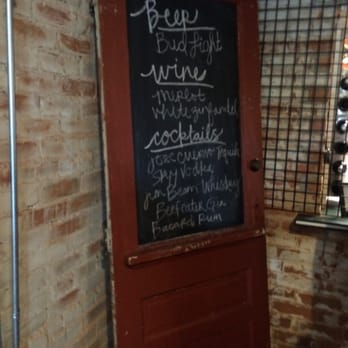 Beer
Bud Light
Wine
Merlot
White Zinfandel
Cocktails
Jose Cuervo Tequila
Sky Vodka
Jim Beam Whiskey
Beefeater Gin
Bacardi Rum